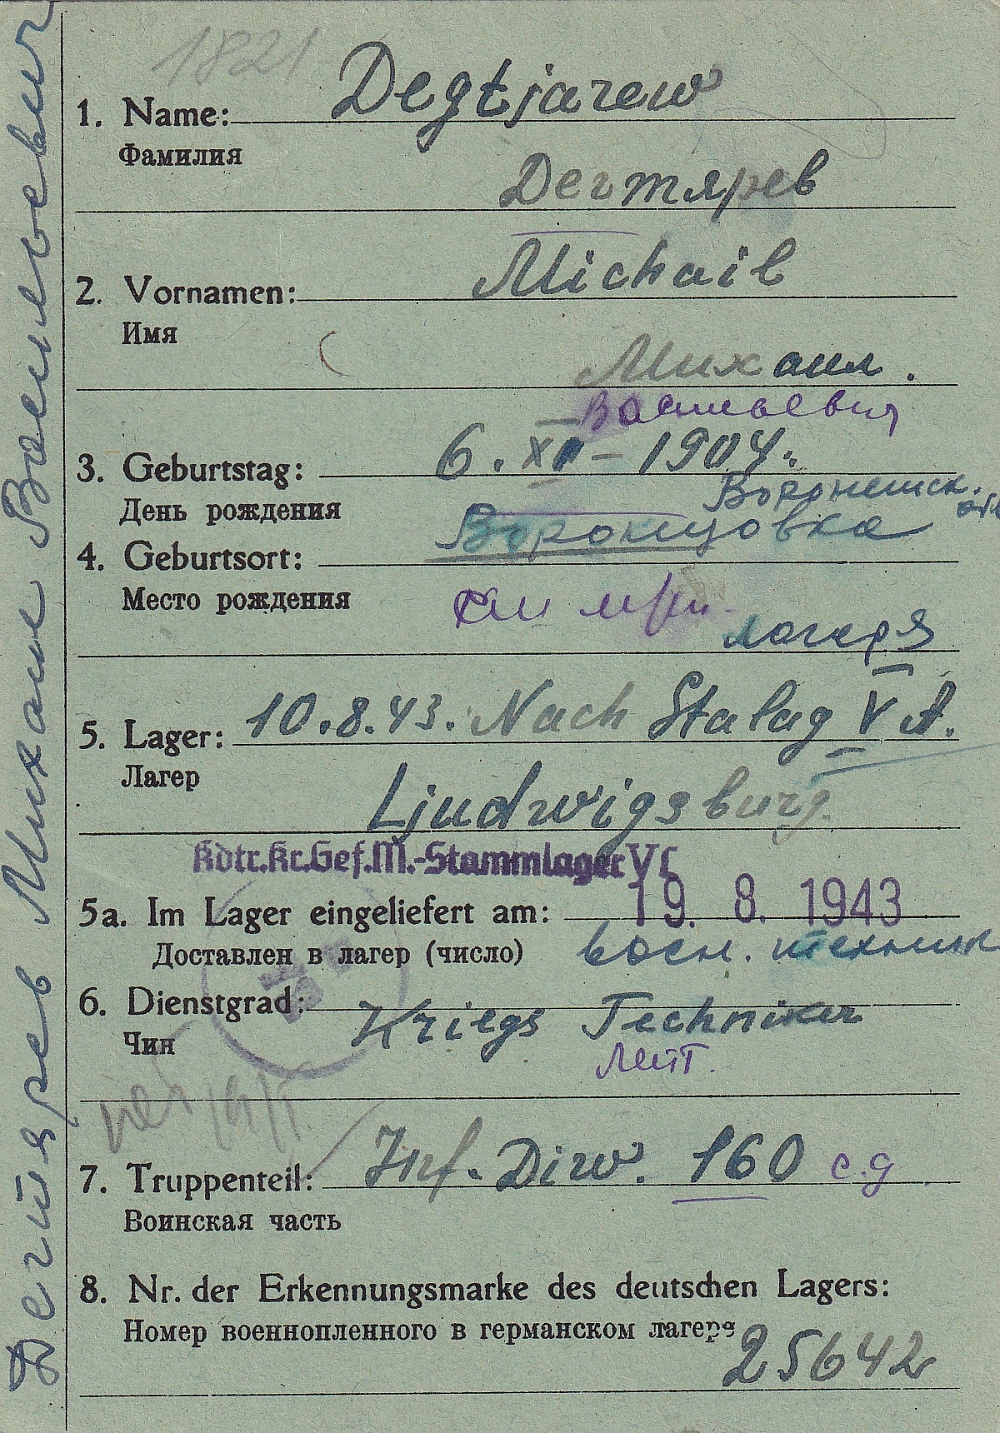 1821
1. Name: Degtjarew
Фамилия
Дегтярев
2. Vornamen: Michail
Имя
Михаил.
Васильевич
3. Geburtstag: 6. XI – 1904.
День рождения
Воронежск. обл
4. Geburtsort: Воронцовка
Место рождения
лагеря
5. Lager: 10.8.43. Nach Stalag V A.
Лагер
Ljudwigsburg.
Kdtr.Kr.Gef.M.-Stammlager V C
5a. Im Lager eingeliefert am: 19. 8. 1943
Доставлен в лагер (число)
воен. техник
6. Dienstgrad: Kriegs Techniker
Чин
лейт.
7. Truppenteil: Inf. Diw. 160 с.д
Воинская часть
8. Nr. der Erkennungsmarke des deutschen Lagers:
Номер военнопленного в германском лагере
25642
Дегтярев Михаил Васильевич